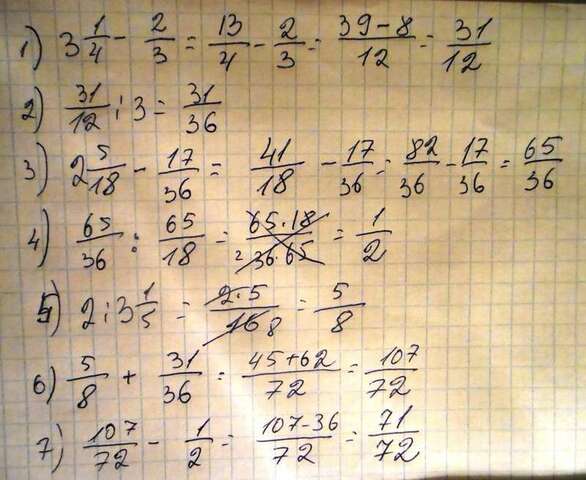 1) 3 1/4 - 2/3 = 13/4 - 2/3 = (39-8)/12 = 31/12
2) 31/12 : 3 = 31/36
3) 2 5/18 - 17/36 = 41/18 - 17/36 = 82/36 - 17/36 = 65/36
4) 65/36 : 65/18 = (65·18)/(2 36·65) = 1/2
5) 2 : 3 1/5 = (2·5)/(16 8) = 5/8
6) 5/8 + 31/36 = (45+62)/72 = 107/72
7) 107/72 - 1/2 = (107-36)/72 = 71/72